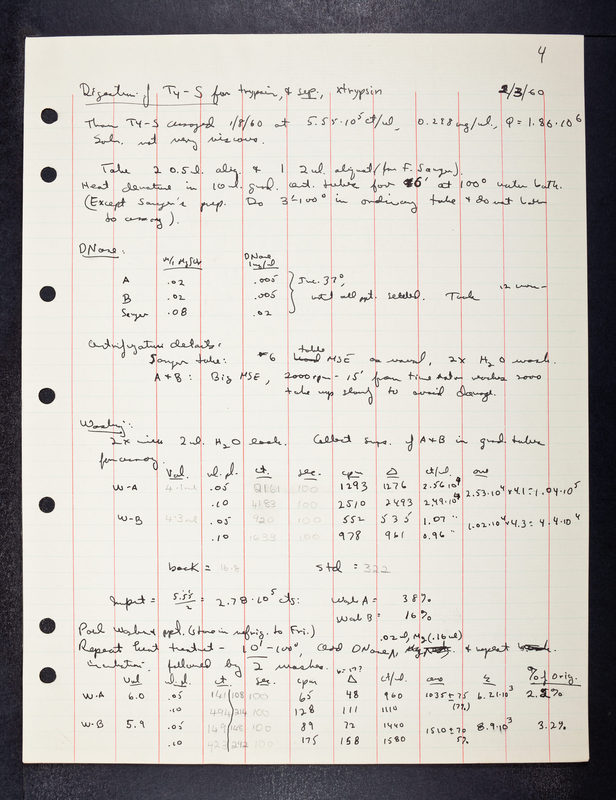 4
Digestion of T4-S for trypsin, & sep. xtrypsin 2/3/60
Thaw T4-S assayed 1/8/60 at 5.55·10⁵ ct/ul, 0.288 mg/ul, φ = 1.86·10⁶
Soln. not very viscous.
Take 2 0.5 ul. aliq. & 1 2 ul. aliquot (for F. Sanger).
Heat denature in 10 ul. grad. cent. tubes for 6' at 100° water bath.
(Except Sanger's prep. Do 3'-100° in ordinary tube & do not bother
to assay).
DNase: ul MgSO4 DNase 1mg/ul
A .02 .005
B .02 .005
Sanger .08 .02
Inc. 37°, until all ppt. settled. Took .2
Centrifugation details:
Sanger tube: #6 table MSE as usual, 2x H2O wash.
A & B: Big MSE, 2000 rpm - 15' from time rotor reaches 2000
take up slowly to avoid damage.
Washing:
2x with 2 ul. H2O each. Collect sups. of A & B in grad. tubes
for assay.
Vol. ul. pl. ct. sec. cpm Δ ct/ul. ave
W-A 4.1 ml .05 2161 100 1293 1276 2.56·10⁴ 2.53·10⁴ x 4.1 = 1.04·10⁵
.10 4183 100 2510 2493 2.49·10⁴
W-B 4.3 ml .05 920 100 552 535 1.07 " 1.02·10⁴ x 4.3 = 4.4·10⁴
.10 1633 100 978 961 0.96 "
back = 16.8 std = 322
Input = 5.55/2 = 2.78·10⁵ cts: Wash A = 38%
Wash B = 16%
Pool washes & ppt. (store in refrig. to Fri.) .02 ul, Mg (.16 ul)
Repeat heat treatmt - 10'-100°, add DNase, & repeat
incubation, followed by 2 washes. b = 17?
Vol ul. pl. ct. sec. cpm Δ ct/ul. ave Σ % of orig.
W-A 6.0 .05 141 108 100 65 48 960 1035 ± 75 (7%) 6.21·10³ 2.2%
.10 494 214 100 128 111 1110
W-B 5.9 .05 149 148 100 89 72 1440 1510 ± 70 5% 8.9·10³ 3.2%
.10 423 292 100 175 158 1580